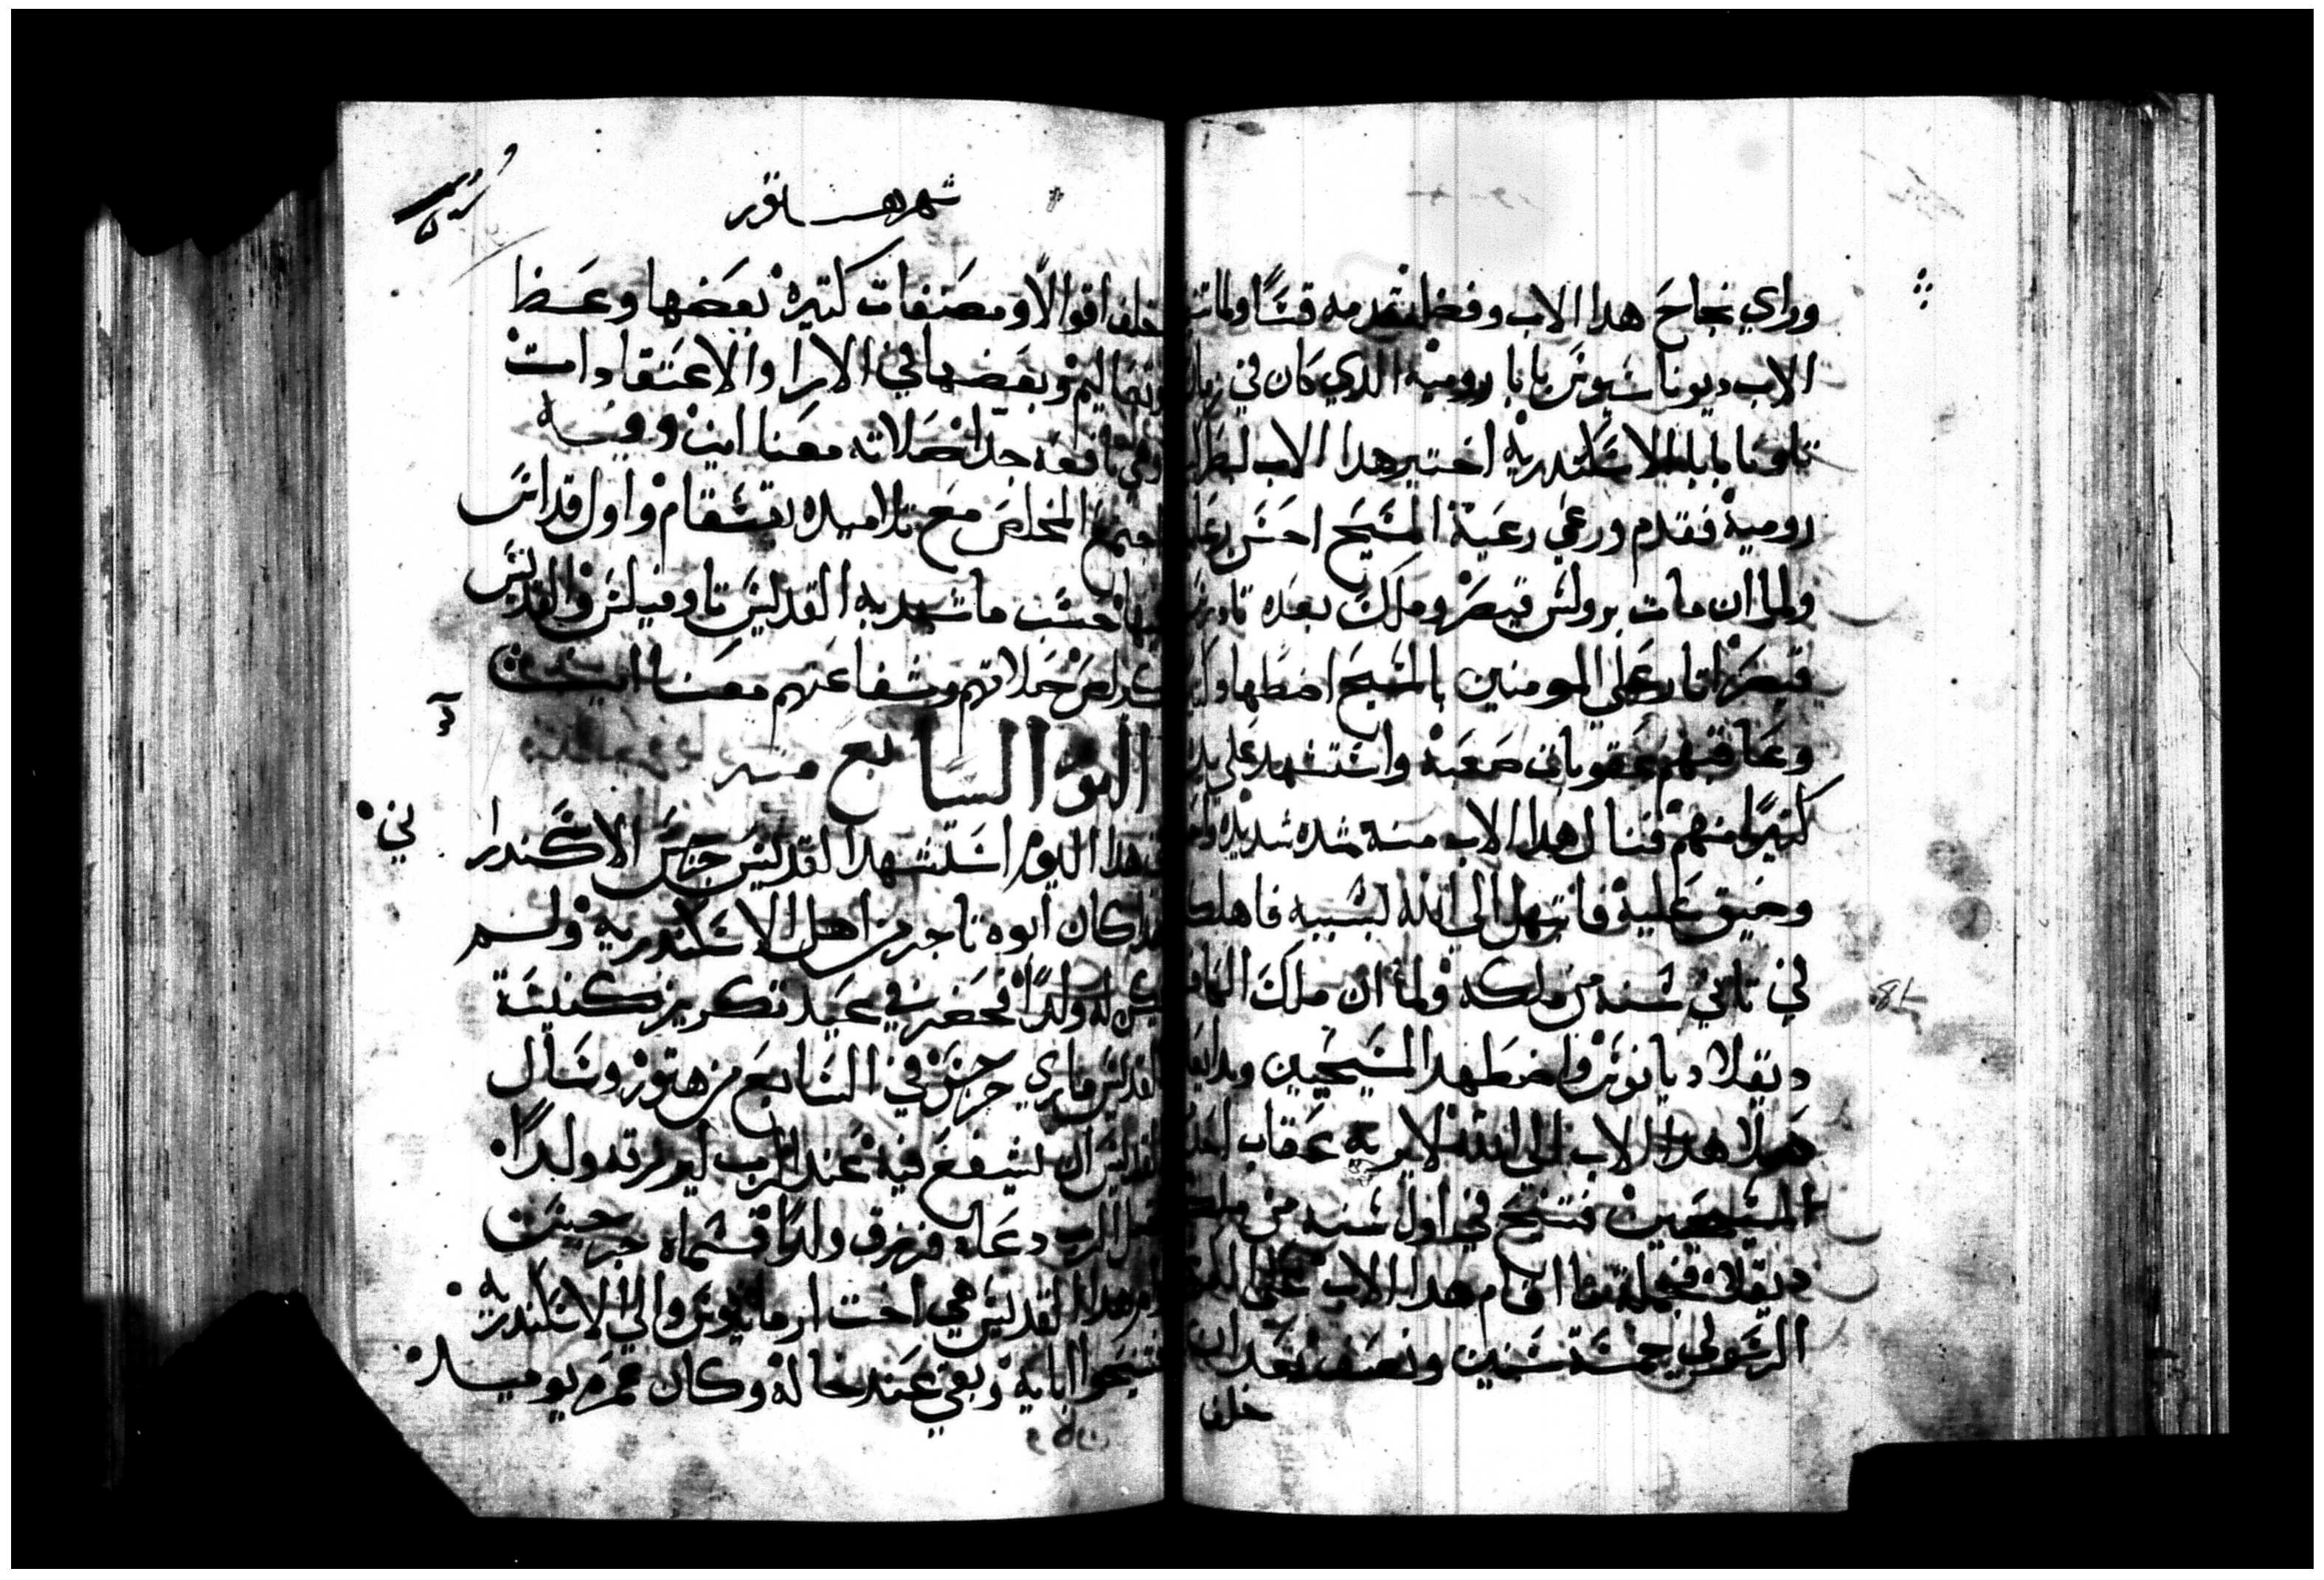 وراي نجاح هدا الاب وفضله قدمه قسًا ولما
الاب ديوناسيوس بابا رومية الدي كان في
تاونا بابا الاسكندرية اختير هدا الاب
رومية فقدم ورعي رعية المسيح احسن رعاية
ولما ان مات برولس قيصر وملك بعده
قيصر اتار علي المومنين بالمسيح اضطهاد
وعاقبهم بعقوبات صعبة واستشهد علي يديه
كتيرًا منهم فنال هدا الاب منه شده شديدة
وضيق عليه فابتهل الي الله بسببه فاهلكه
في تاني سنه من ملكه ولما ان ملك
دبقلاديانوس واضطهد المسيحيين
هدا الاب الي الله لا يريه عقاب احد
المسيحيين فتنيح في اول سنه من
دبقلا فجملة ما اقام هدا الاب علي
الرسولي خمسة سنين ونصف بعد ان
خلف
شهر هــاتور
خلف اقوالًا ومصنفات كتيرة بعضها وعظ
وتعاليم وبعضها في الارا والاعتقادات
وهي نافعة جدا صلاته معنا امين وفيه
اجتمع المخلص مع تلاميده بقسقام واول قداس
فيها حسب ما شهد به القديس تاوفيلس والقديس
صلاتهم وشفاعتهم معنا امين
اليوم السابع منه
في هدا اليوم استشهد القديس جرجس الاسكندرا
ني
كان ابوه تاجر من اهل الاسكندرية ولم
يكن له ولدًا فحضر في عيد تكريز كنيسة
القديس ماري جرجس في السابع من هتور وسال
القديس ان يشفع فيه عند الرب ليرزقه ولدًا
فقبل الرب دعاه فرزق ولدًا فسماه جرجس
وام هدا القديس هي اخت ارمانيوس والي الاسكندرية
فتنيحوا اباية وبقي عند خاله وكان عمره يوميد
وكان